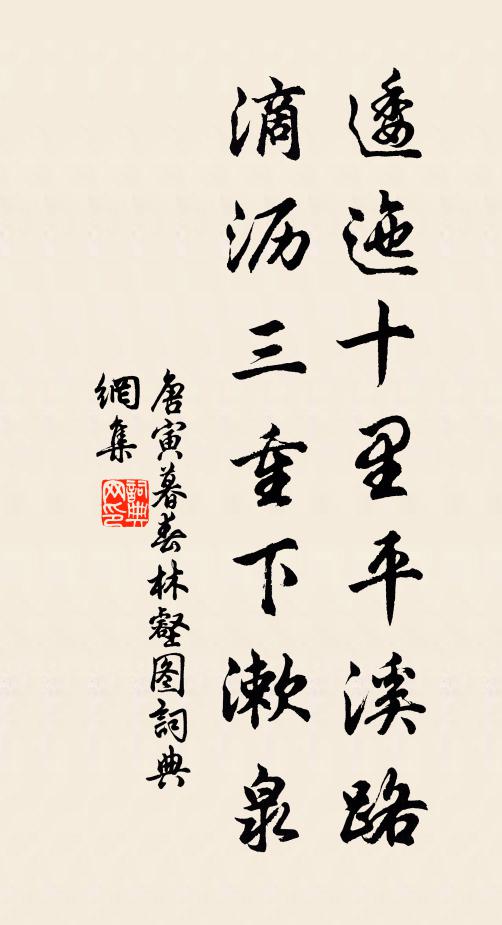 逶迤十里平溪路
滴沥三重下漱泉
唐寅暮春林壑图詞典
網集
詞典网印